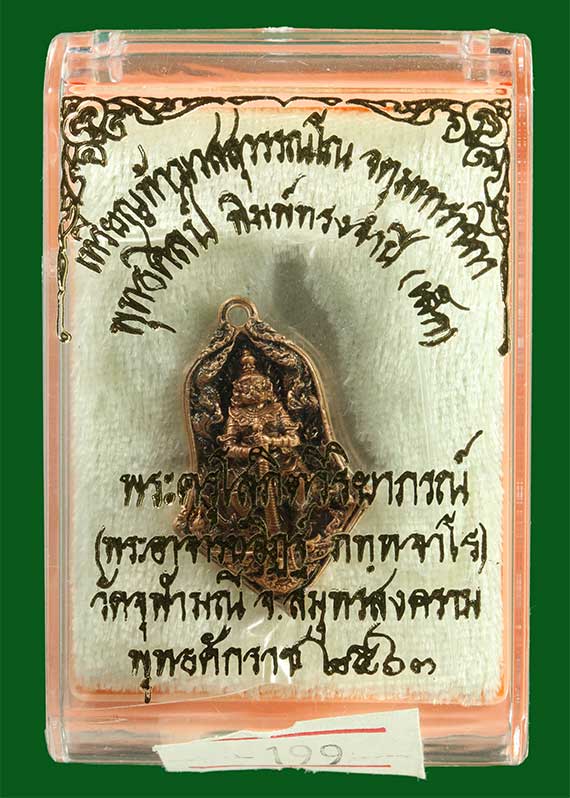 เหรียญท้าวเวสสุวรรณโณ จตุมหาราชิกา
พุทธศิลป์ พิมพ์ทรงจำปี (เล็ก)
พระครูโสภิตวิริยาภรณ์
(พระอาจารย์อิฏฐ์ ภทฺทจาโร)
วัดจุฬามณี จ.สมุทรสงคราม
พุทธศักราช ๒๕๖๓
199